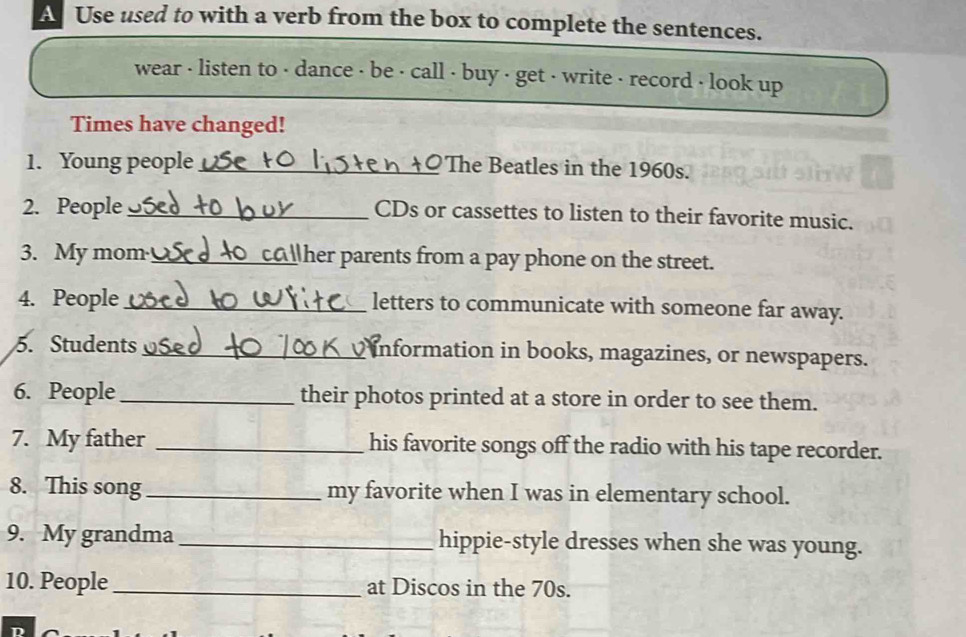 A Use used to with a verb from the box to complete the sentences.
wear · listen to · dance · be · call · buy · get · write · record · look up
Times have changed!
1. Young people use to listen to The Beatles in the 1960s.
2. People used to bur CDs or cassettes to listen to their favorite music.
3. My mom used to call her parents from a pay phone on the street.
4. People used to write letters to communicate with someone far away.
5. Students used to look up information in books, magazines, or newspapers.
6. People ____________ their photos printed at a store in order to see them.
7. My father ____________ his favorite songs off the radio with his tape recorder.
8. This song ____________ my favorite when I was in elementary school.
9. My grandma ____________ hippie-style dresses when she was young.
10. People ____________ at Discos in the 70s.